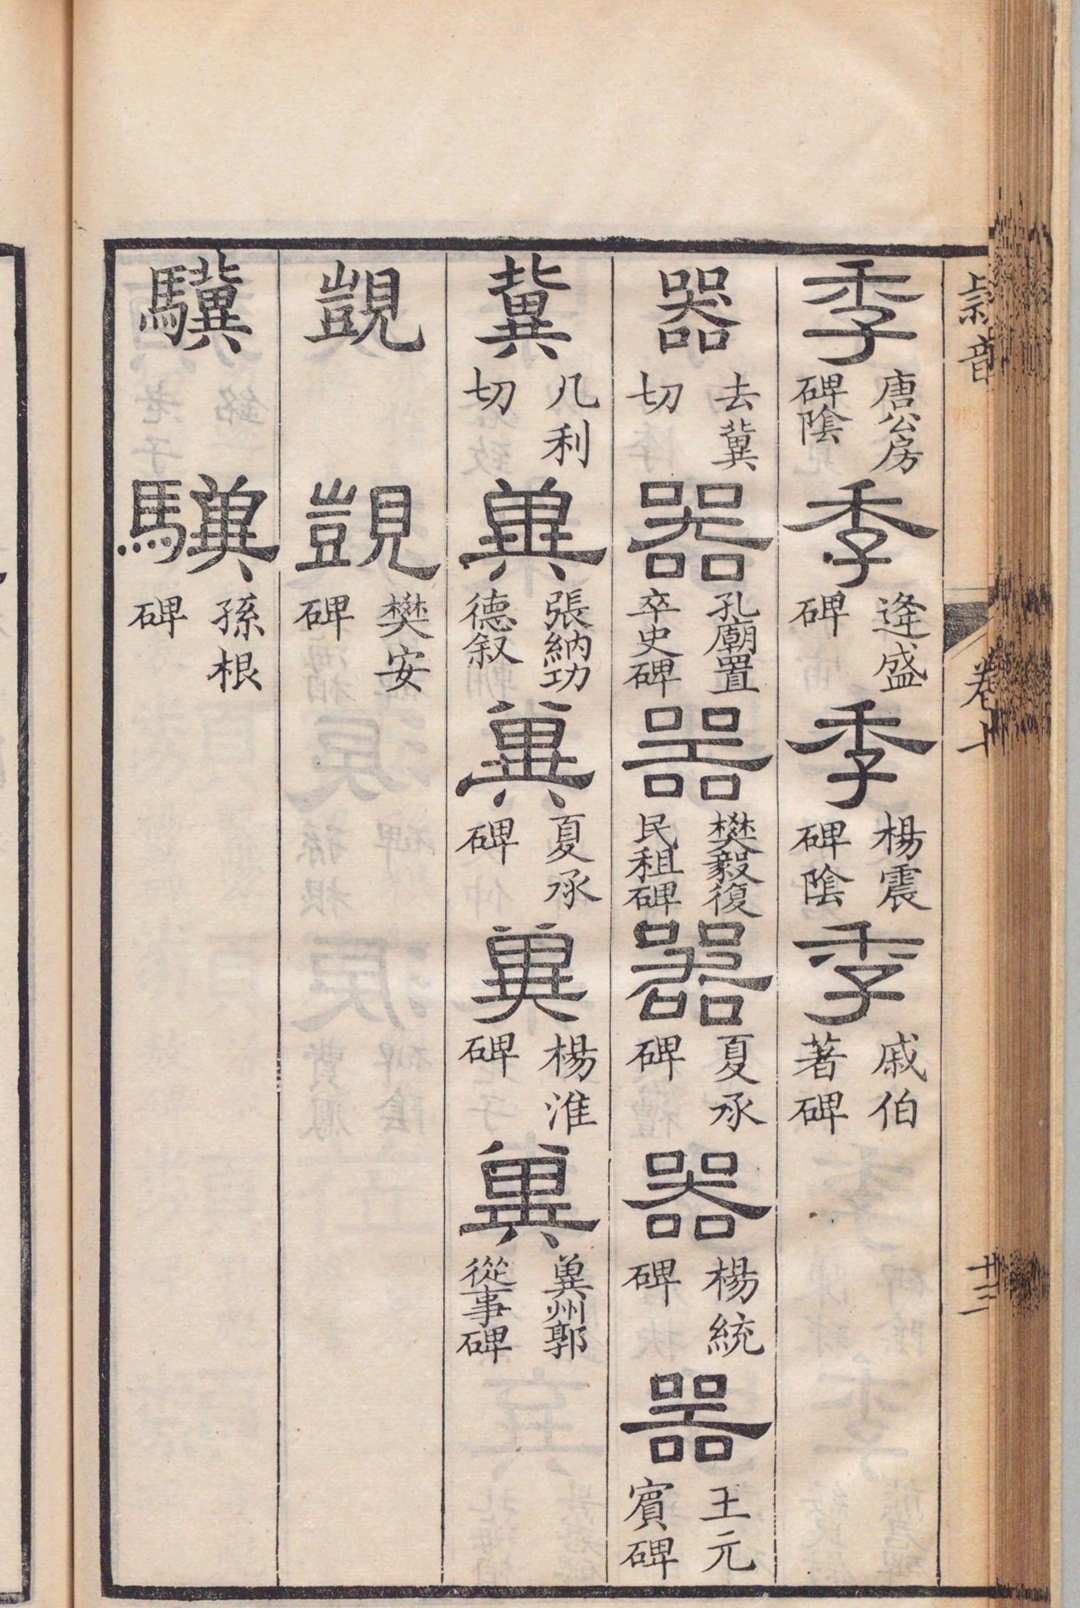 季 唐公房碑陰 季 逄盛碑 季 楊震碑陰 季 戚伯著碑
器 去冀切 器 孔廟置卒史碑 器 樊毅復民租碑 器 夏承碑 器 楊統碑 器 王元賓碑
冀 几利切 冀 張納功德叙 冀 夏承碑 冀 楊淮碑 冀 冀州郭從事碑
覬 覬 樊安碑
驥 驥 孫根碑
卷十
廿三